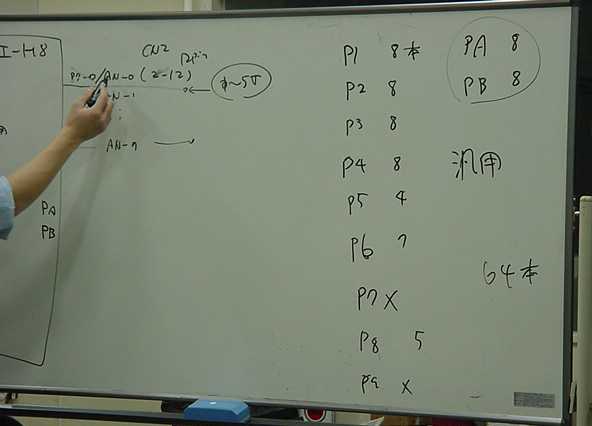 I-H8
CN2
P7-0 AN-0 (2-12)
N-1
AN-7
φ~5V
PA
PB
P1 8本
P2 8
P3 8
P4 8
P5 4
P6 7
P7 X
P8 5
P9 X
PA 8
PB 8
汎用
64本